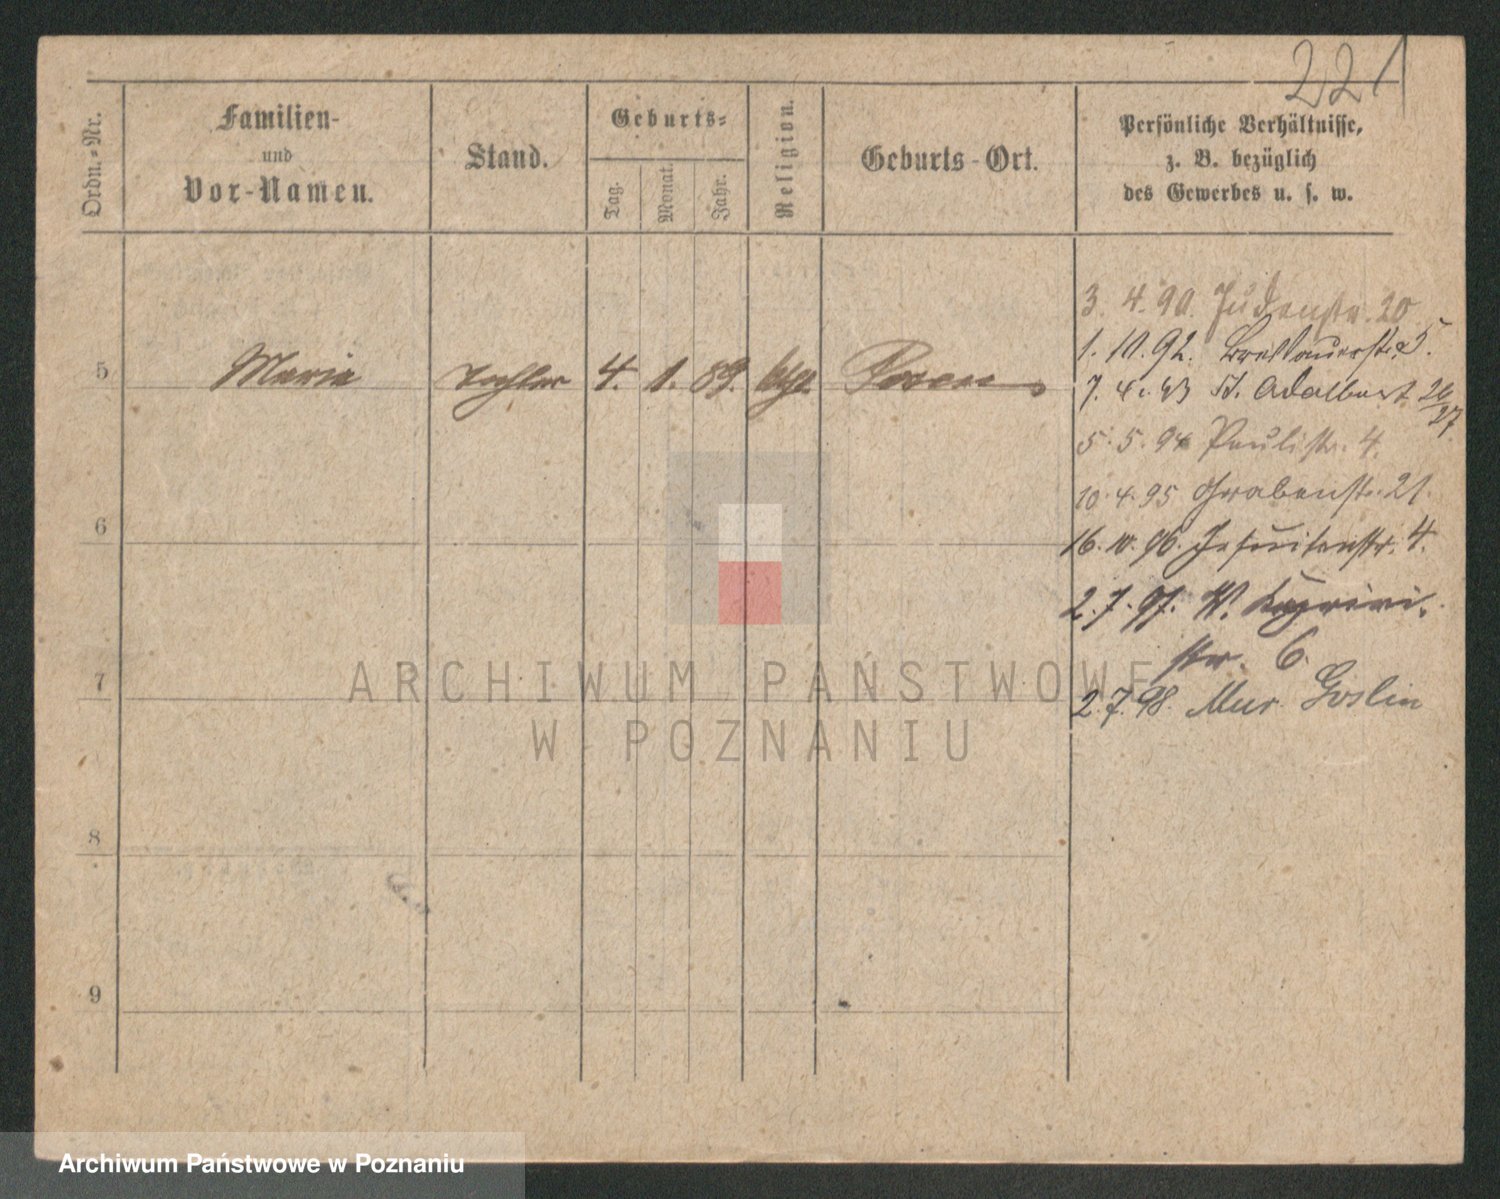 221
Ordn.-Nr.
Familien-
und
Vor-Namen.
Stand.
Geburts-
Tag.
Monat.
Jahr.
Religion.
Geburts-Ort.
Persönliche Verhältnisse,
z. B. bezüglich
des Gewerbes u. s. w.
3. 4. 90. Judenstr. 20
1. 10. 92. Breslauerstr. 35.
5 Maria Tochter 4. 1. 89. ktl. Posen
7. 4. 93 St. Adalbert 26/27
5. 5. 94 Paulistr. 4.
10. 4. 95 Grabenstr. 21.
6
16. 10. 96. Jesuitenstr. 4.
2. 7. 97. W. Kaprivi-
str. 6.
7
2. 7. 98. Mur. Goslin
8
9
ARCHIWUM PAŃSTWOWE
W POZNANIU
Archiwum Państwowe w Poznaniu